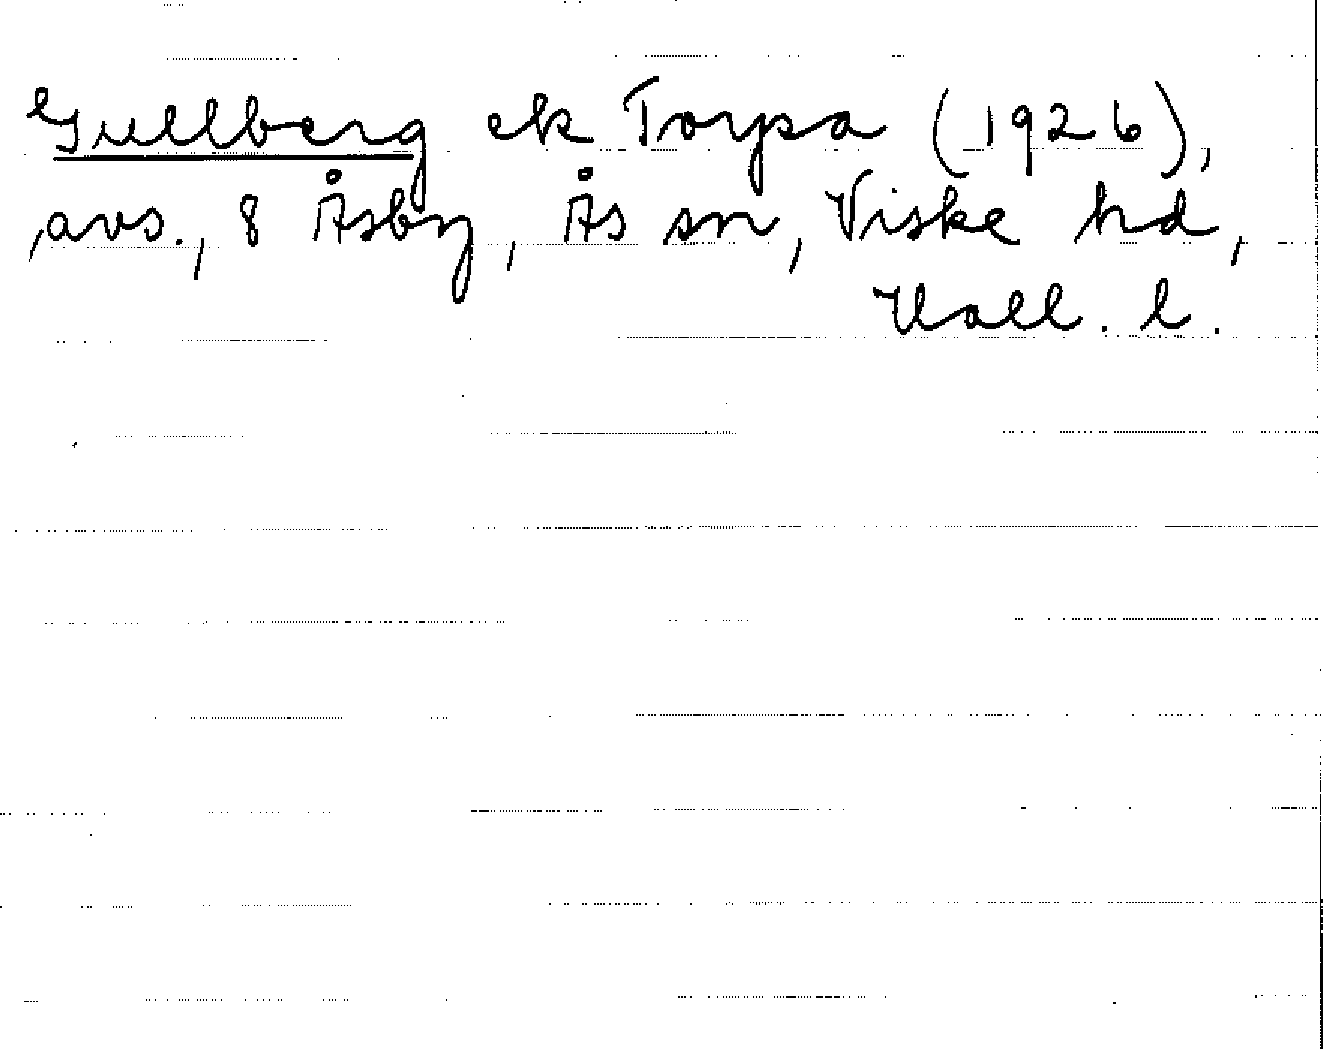 Gullberg ek Torpa (1926),
avs., 8 Åsby, Ås sn, Viske hd,
Hall. l.